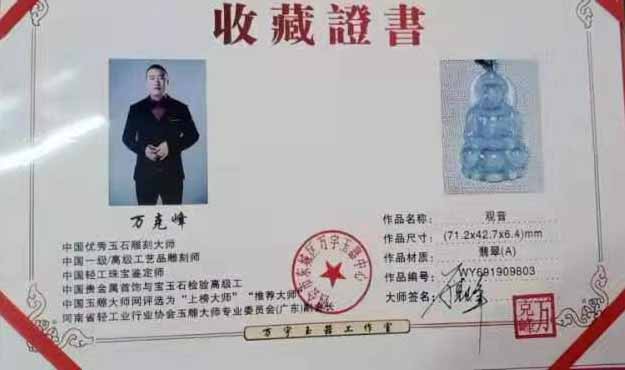 收藏證書
万克峰
中国优秀玉石雕刻大师
中国一级/高级工艺品雕刻师
中国轻工珠宝鉴定师
中国贵金属首饰与宝玉石检验高级工
中国玉雕大师网评选为“上榜大师”“推荐大师”
河南省轻工业行业协会玉雕大师专业委员会(广东)副会长
作品名称: 观音
作品尺寸: (71.2x42.7x6.4)mm
作品材质: 翡翠(A)
作品编号: WY691909803
大师签名:
东城区万字玉器中心
万字玉器工作室